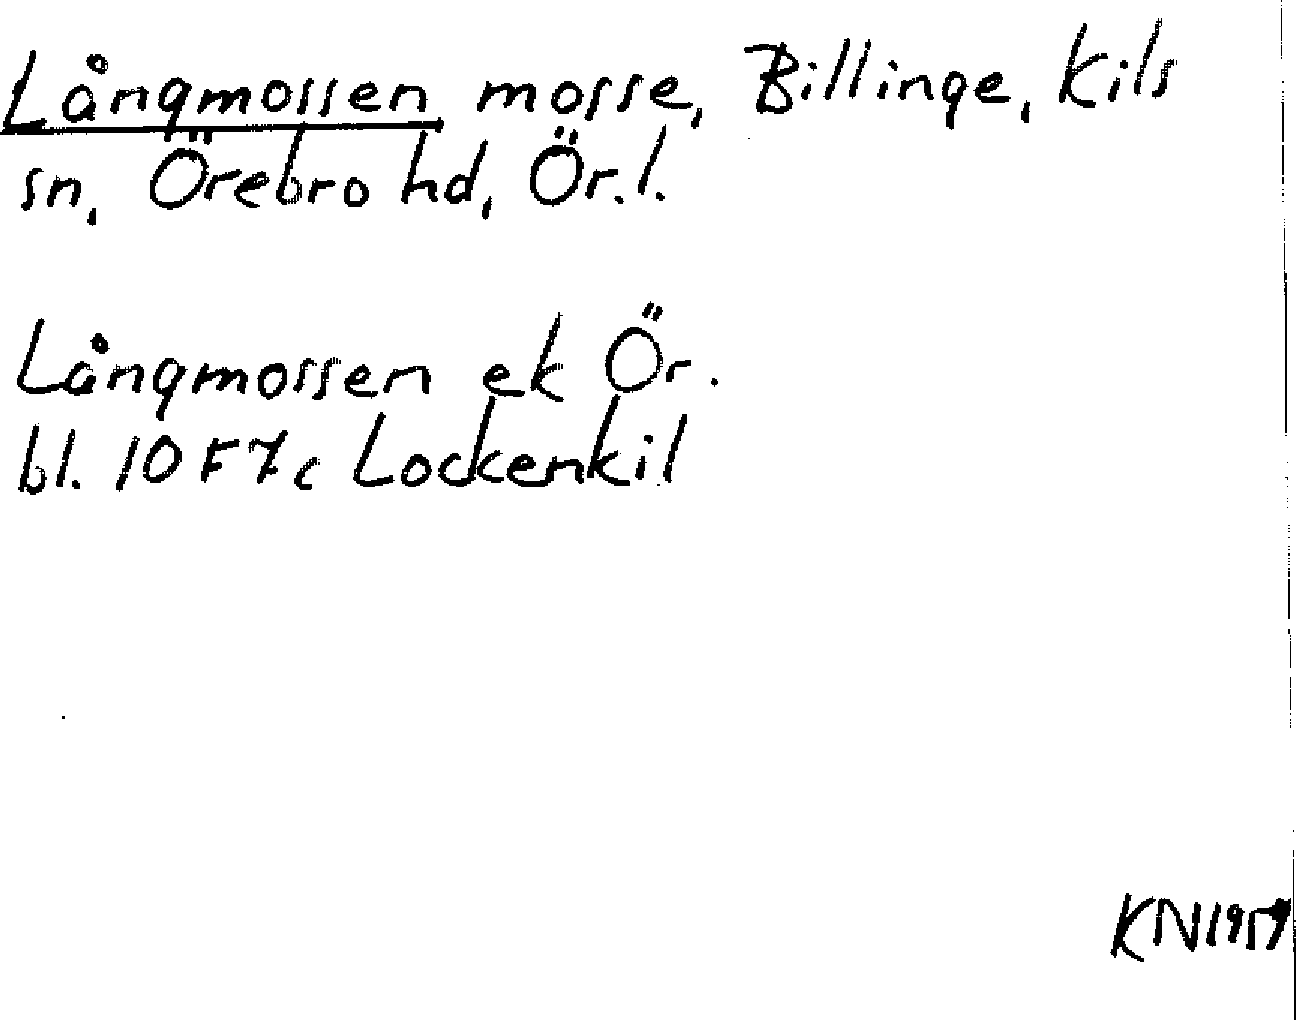 Långmossen mosse, Billinge, Kils
sn, Örebro hd, Ör.l.
Långmossen ek Ör.
bl. 10 F 7c Lockenkil
KN 1959